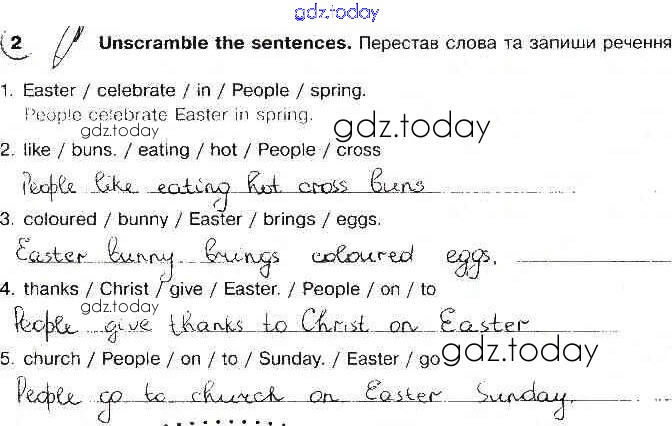 gdz.today
2 Unscramble the sentences. Перестав слова та запиши речення
1. Easter / celebrate / in / People / spring.
People celebrate Easter in spring.
gdz.today gdz.today
2. like / buns. / eating / hot / People / cross
People like eating hot cross buns
3. coloured / bunny / Easter / brings / eggs.
Easter bunny brings coloured eggs.
4. thanks / Christ / give / Easter. / People / on / to
gdz.today
People give thanks to Christ on Easter
5. church / People / on / to / Sunday. / Easter / go
gdz.today
People go to church on Easter Sunday.